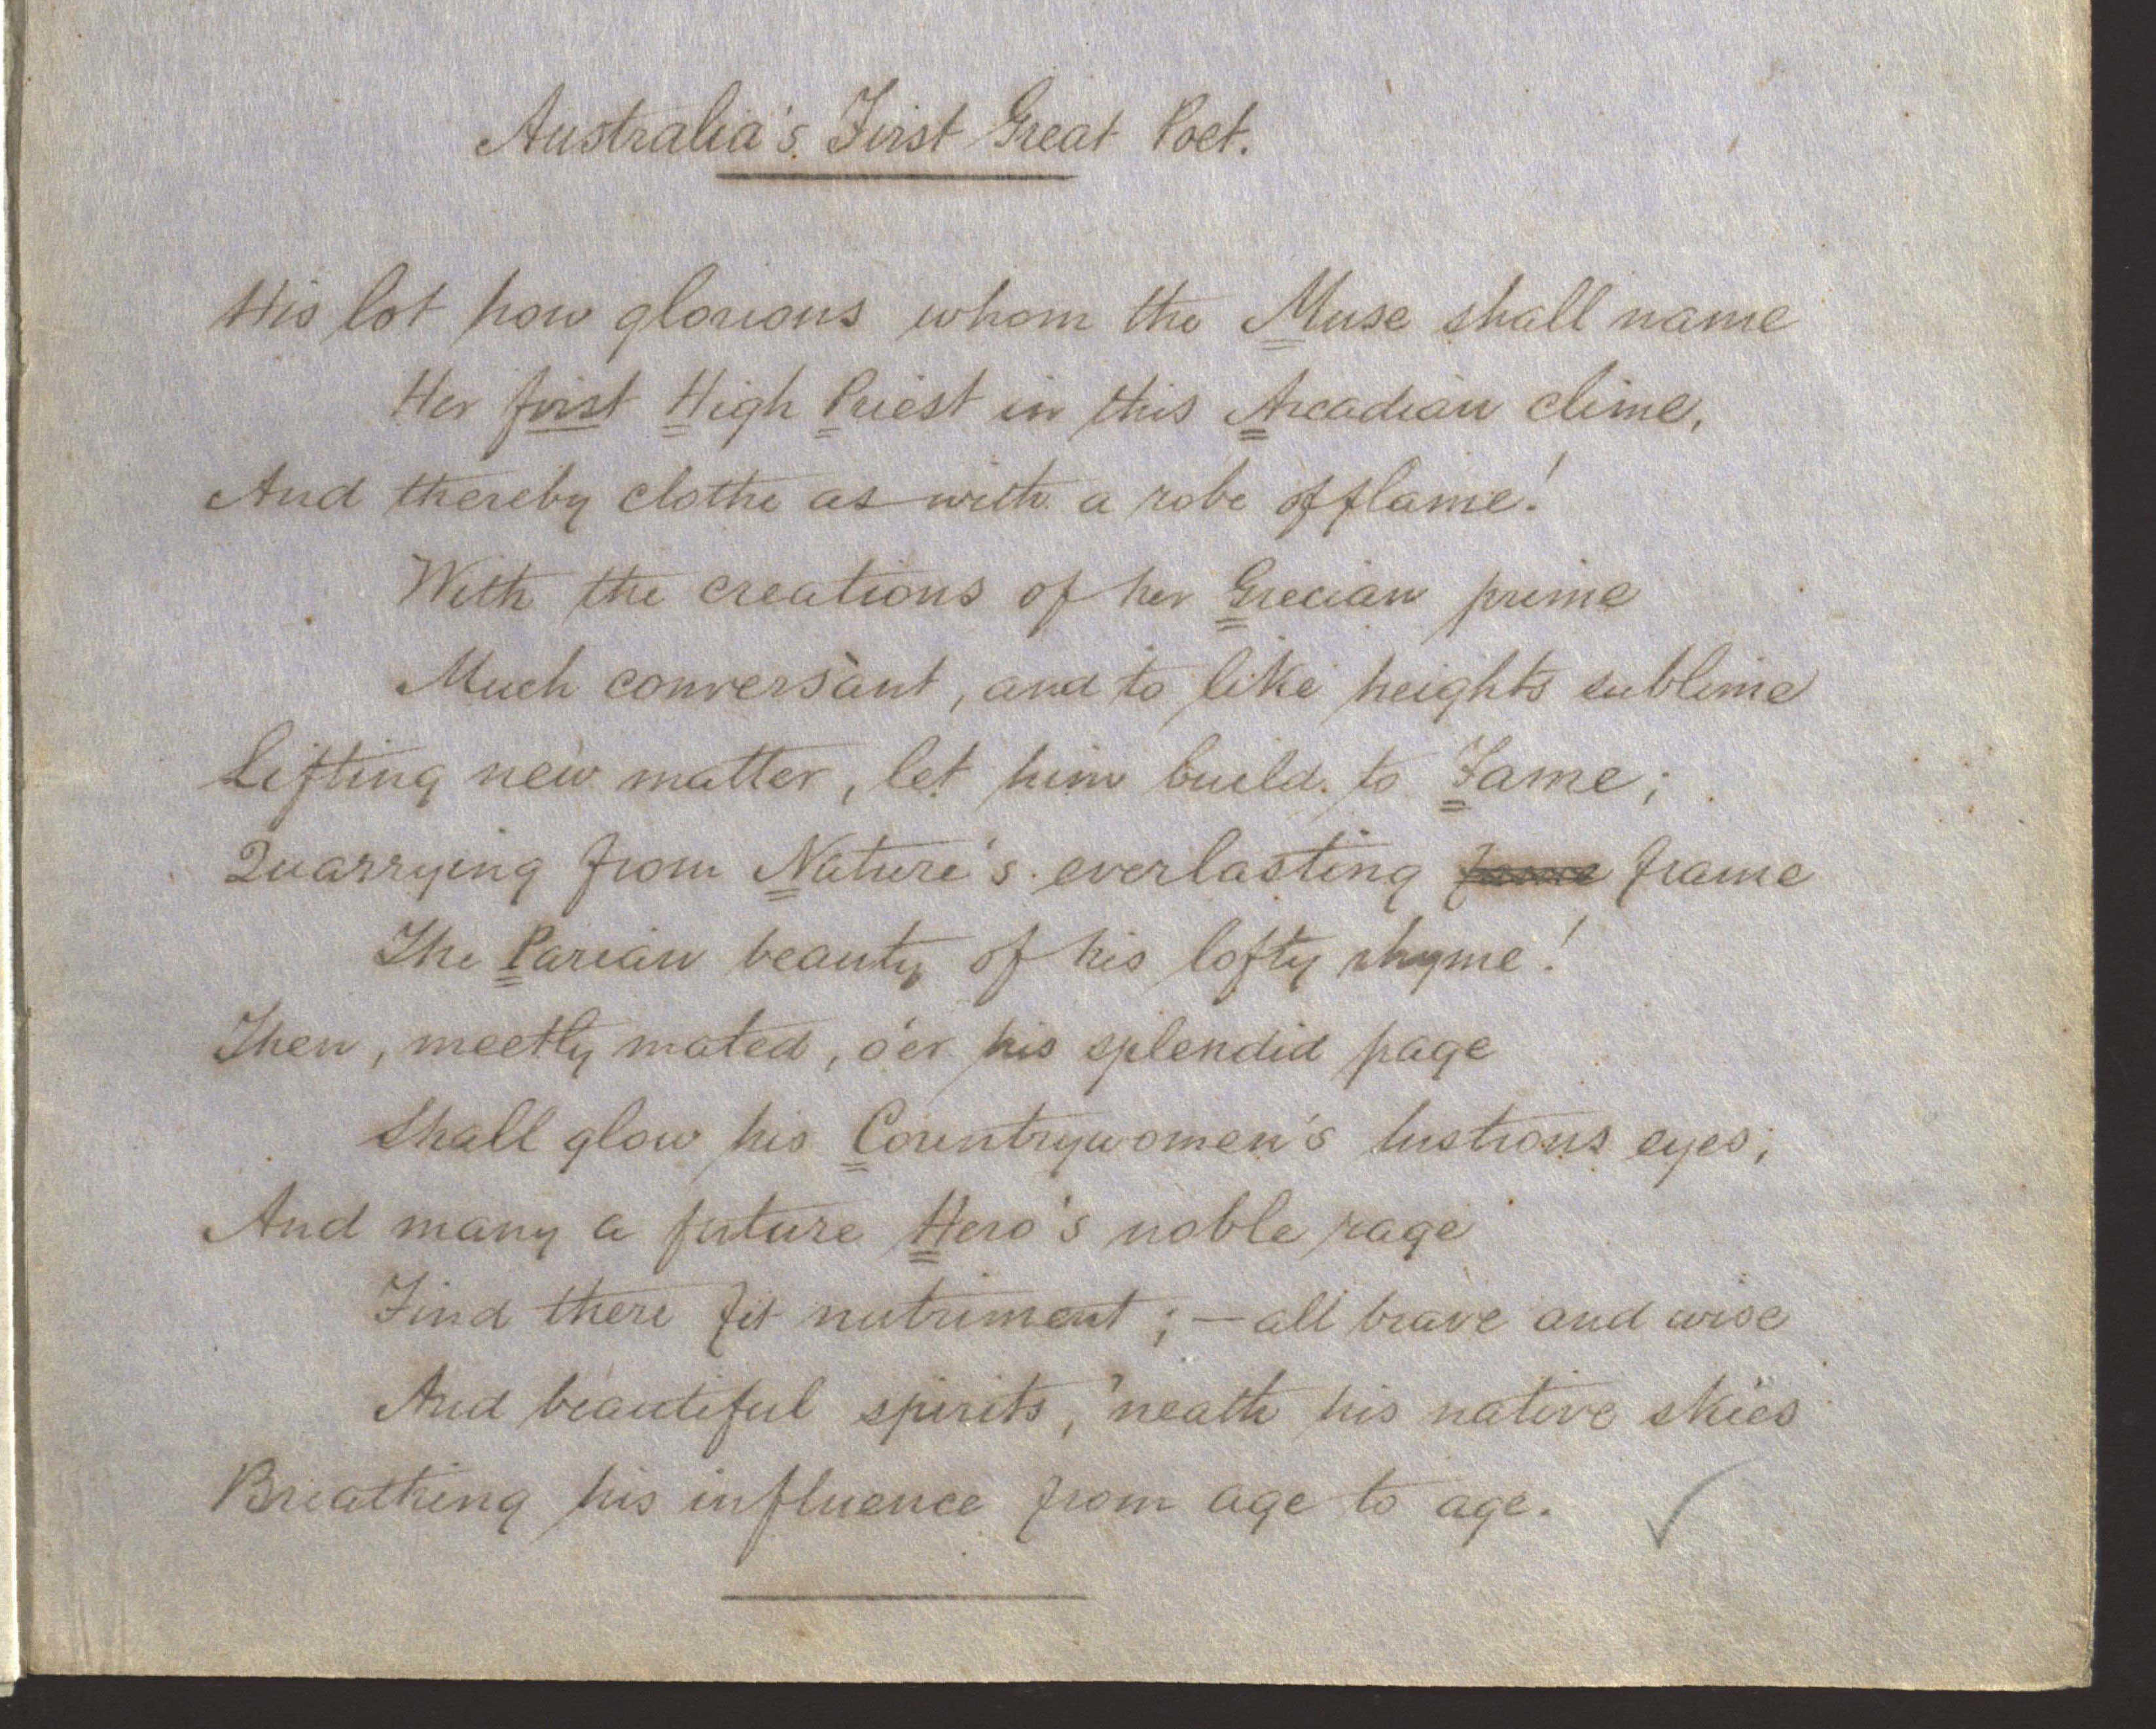 Australia's First Great Poet.
His lot how glorious whom the Muse shall name
Her first High Priest in this Arcadian clime,
And thereby clothe as with a robe of flame!
With the creations of her Grecian prime
Much conversant, and to like heights sublime
Lifting new matter, let him build to Fame;
Quarrying from Nature's everlasting fame frame
The Parian beauty of his lofty rhyme!
Then, meetly mated, o'er his splendid page
Shall glow his Countrywomen's lustrous eyes;
And many a future Hero's noble rage
Find there fit nutriment; — all brave and wise
And beautiful spirits, 'neath his native skies
Breathing his influence from age to age.